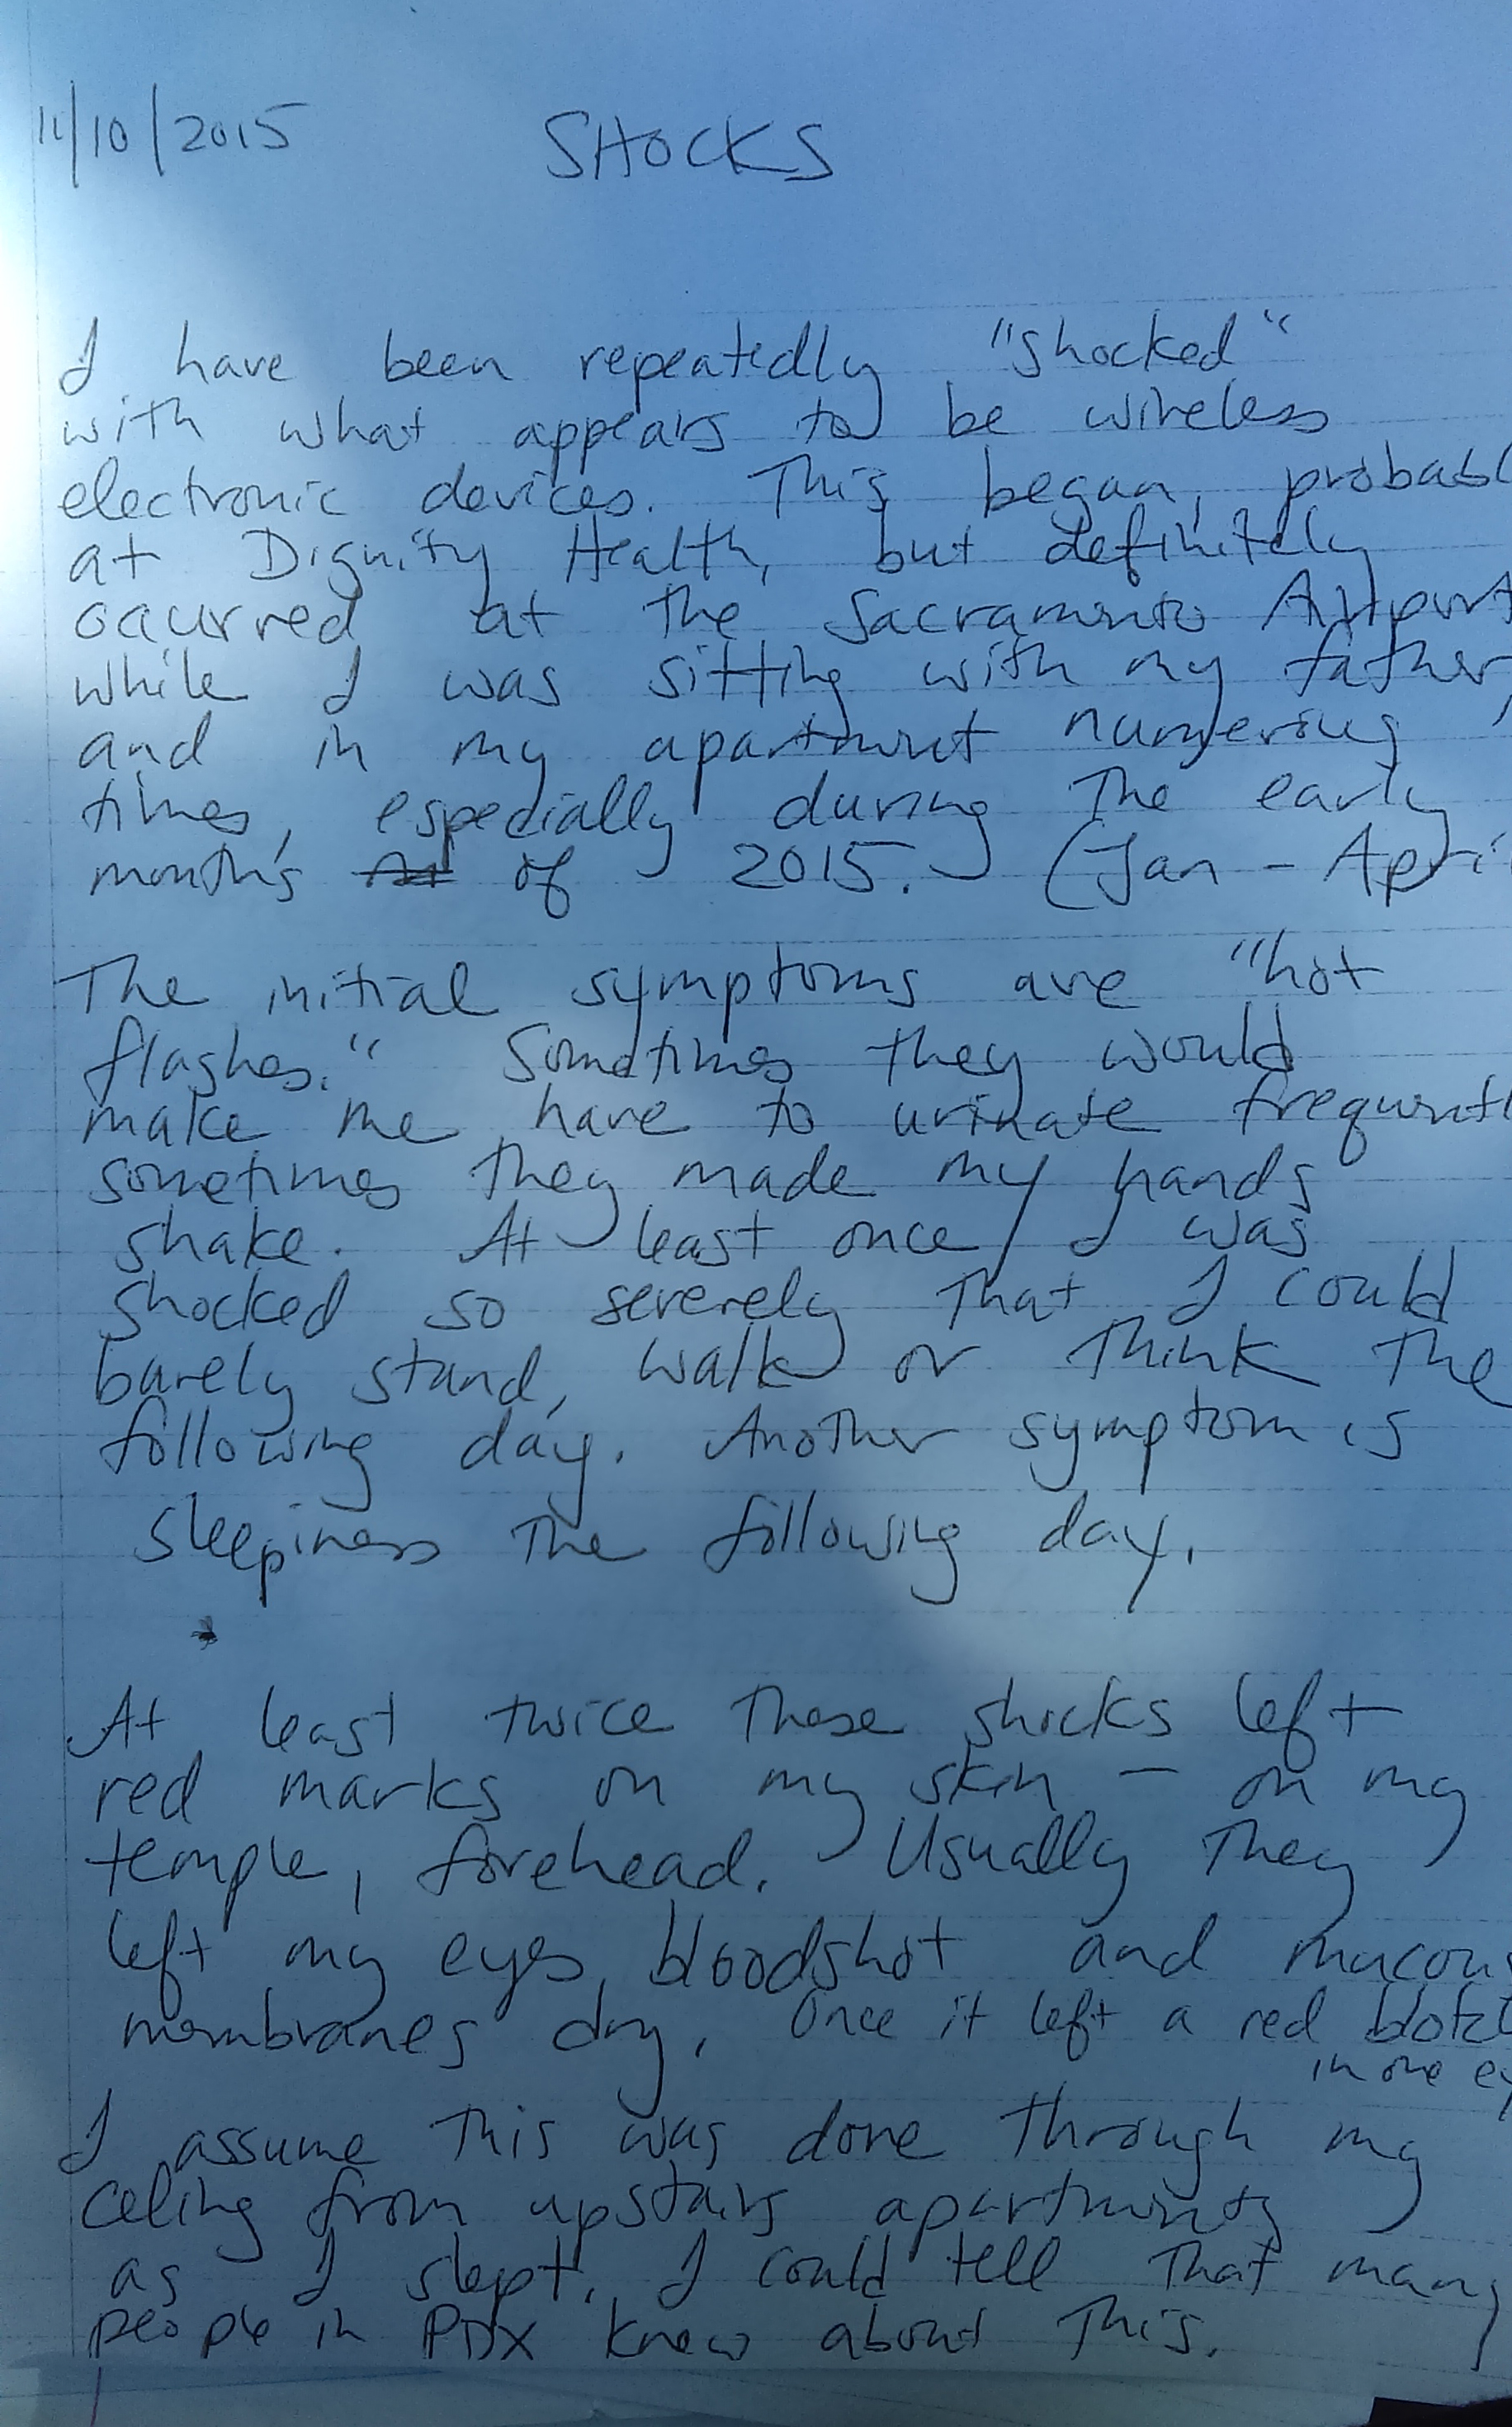 11/10/2015 SHOCKS
I have been repeatedly "shocked"
with what appears to be wireless
electronic devices. This began, probabl
at Dignity Health, but definitely
ocurred at the Sacramento Airport
while I was sitting with my father,
and in my apartment numerous
times, especially during the early
months of 2015. (Jan - Apri
The initial symptoms are "hot
flashes." Sometimes they would
make me have to urinate frequentl
sometimes they made my hands
shake. At least once I was
shocked so severely that I could
barely stand, walk or think the
following day. Another symptom is
sleepiness the following day.
At least twice these shocks left
red marks on my skin - on my
temple, forehead. Usually they
left my eyes bloodshot and mucous
membranes dry. Once it left a red blotc
in one ey
I assume this was done through my
celing from upstairs apartments
as I slept. I could tell that many
people in PDX knew about this.